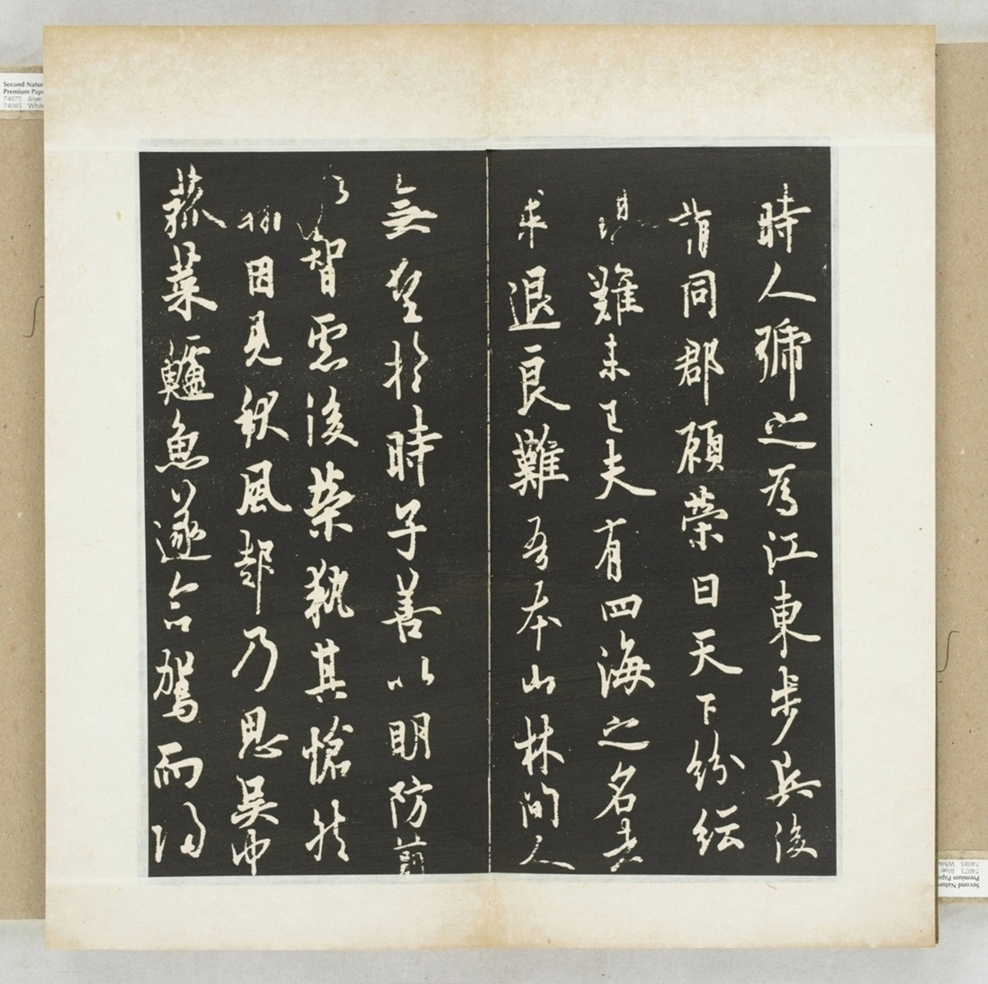 時人號之為江東步兵後
謂同郡顧榮曰天下紛紜
難未已夫有四海之名者
求退良難吾本山林間人
無望於時子善以明防前
以智慮後榮執其愴然
翰因見秋風起乃思吳中
菰菜鱸魚遂命駕而歸
Second Natur
Premium Pap
74075 Blue
74085 White
Second Natur
Premium Pape
74075 Blue
74085 White